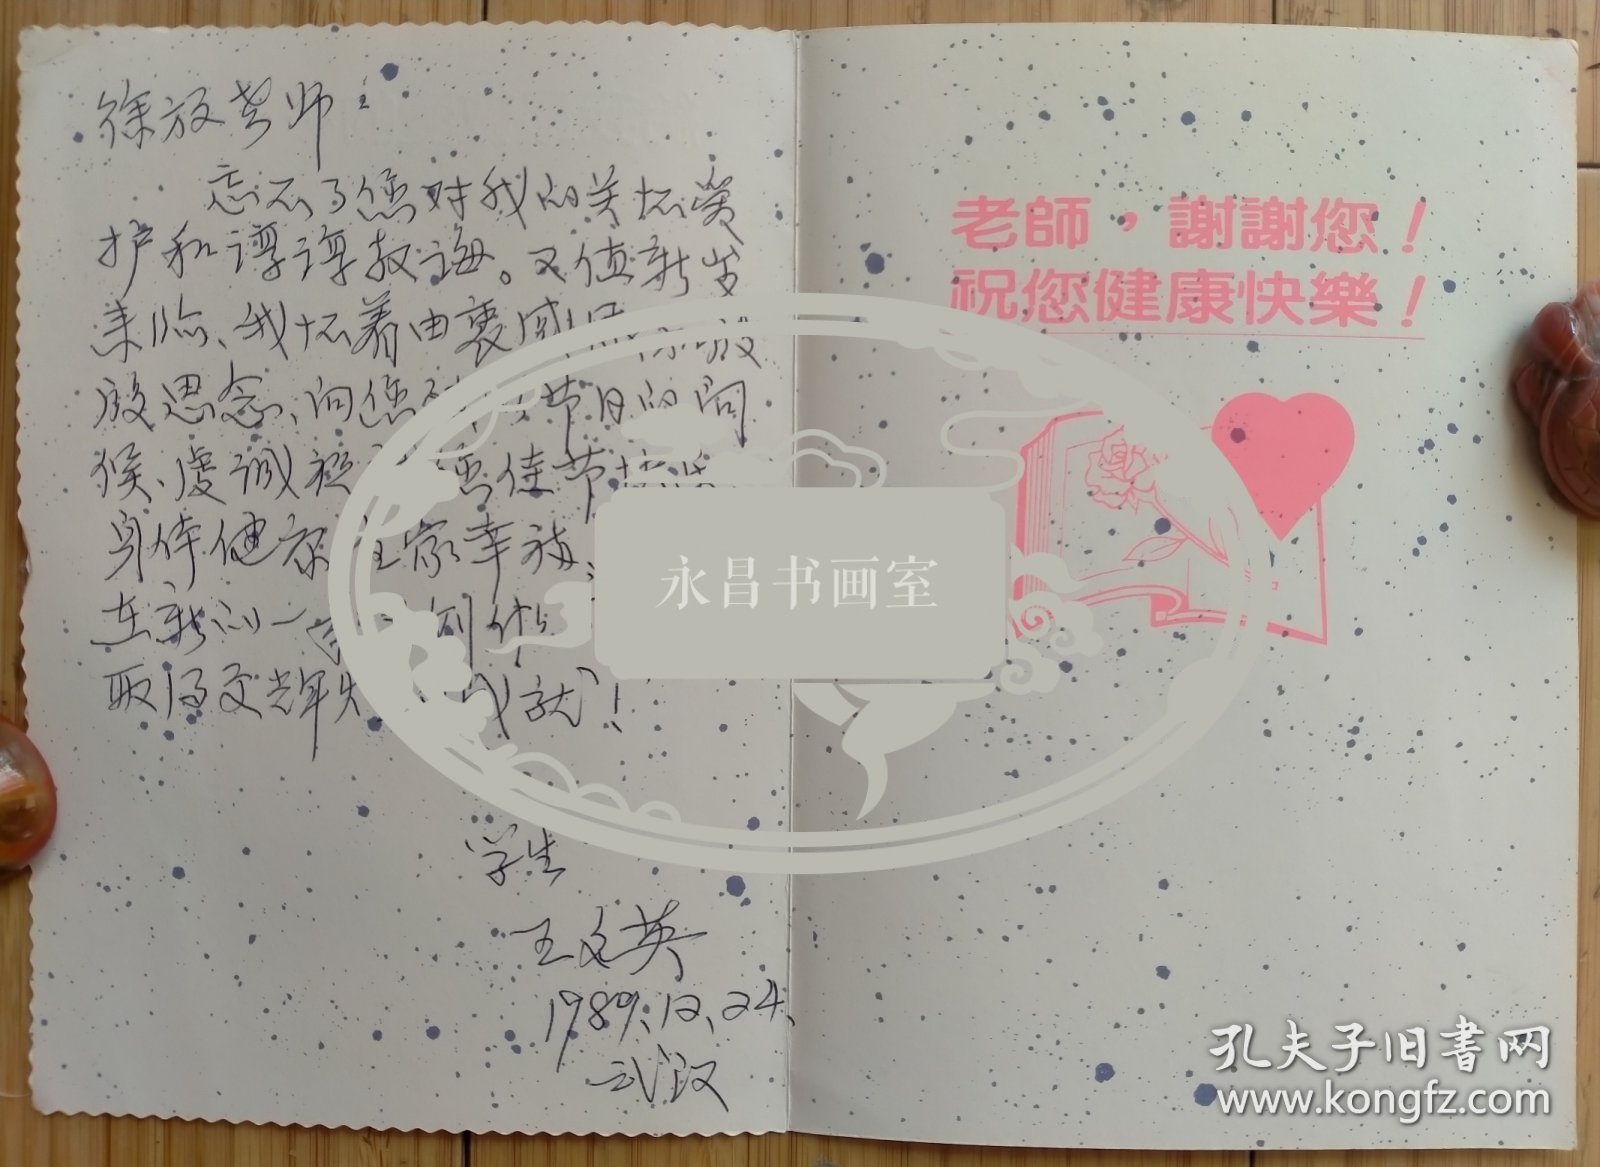 徐放老师：
忘不了您对我的关怀爱
护和谆谆教诲。又值新岁
来临、我怀着由衷感
殷思念、向您 节日的问
候、虔诚祝 佳节
身体健康 全家幸福、
在新的一 创作
取得更辉 成就！
学生
王廷英
1989、12、24、
武汉
老師，謝謝您！
祝您健康快樂！
永昌书画室
孔夫子旧書网
www.kongfz.com